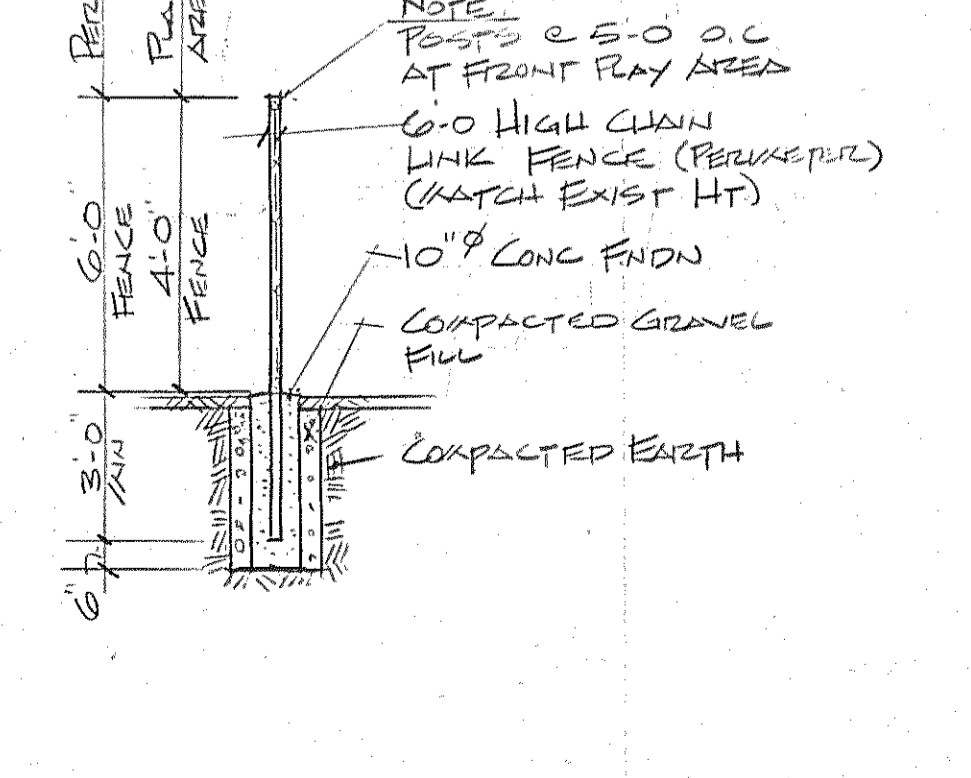 NOTE:
POSTS @ 5'-0" O.C
AT FRONT PLAY AREA
6'-0 HIGH CHAIN
LINK FENCE (PERIMETER)
(MATCH EXIST HT)
10"Ø CONC FNDN
COMPACTED GRAVEL
FILL
COMPACTED EARTH
PER
PLA
ARE
6'-0"
FENCE
4'-0"
FENCE
3'-0"
MIN
6"